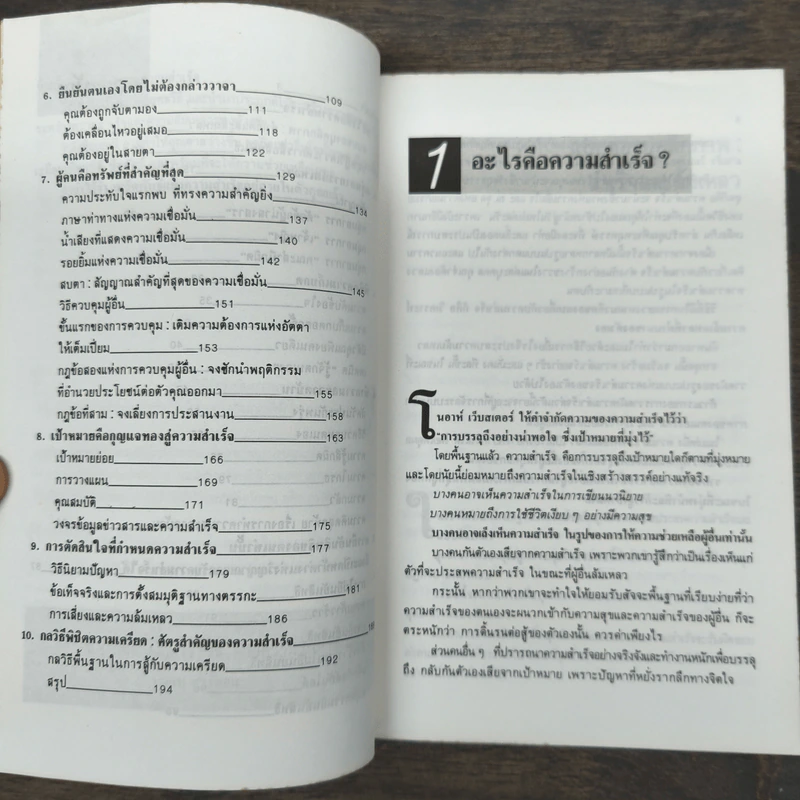 6. ยืนยันตนเองโดยไม่ต้องกล่าววาจา 109
คุณต้องถูกจับตามอง 111
ต้องเคลื่อนไหวอยู่เสมอ 118
คุณต้องอยู่ในสายตา 122
7. ผู้คนคือทรัพย์ที่สำคัญที่สุด 129
ความประทับใจแรกพบ ที่ทรงความสำคัญยิ่ง 134
ภาษาท่าทางแห่งความเชื่อมั่น 137
น้ำเสียงที่แสดงความเชื่อมั่น 140
รอยยิ้มแห่งความเชื่อมั่น 142
สบตา : สัญญาณสำคัญที่สุดของความเชื่อมั่น 145
วิธีควบคุมผู้อื่น 151
ขั้นแรกของการควบคุม : เติมความต้องการแห่งอัตตา
ให้เต็มเปี่ยม 153
กฎข้อสองแห่งการควบคุมผู้อื่น : จงชักนำพฤติกรรม
ที่อำนวยประโยชน์ต่อตัวคุณออกมา 155
กฎข้อที่สาม : จงเลี่ยงการประสานงาน 158
8. เป้าหมายคือกุญแจทองสู่ความสำเร็จ 163
เป้าหมายย่อย 166
การวางแผน 169
คุณสมบัติ 171
วงจรข้อมูลข่าวสารและความสำเร็จ 175
9. การตัดสินใจที่กำหนดความสำเร็จ 177
วิธีนิยามปัญหา 179
ข้อเท็จจริงและการตั้งสมมุติฐานทางตรรกะ 181
การเสี่ยงและความล้มเหลว 186
10. กลวิธีพิชิตความเครียด : ศัตรูสำคัญของความสำเร็จ
กลวิธีพื้นฐานในการสู้กับความเครียด 192
สรุป 194
1 อะไรคือความสำเร็จ ?
โนอาห์ เว็บสเตอร์ ให้คำจำกัดความของความสำเร็จไว้ว่า
"การบรรลุถึงอย่างน่าพอใจ ซึ่งเป้าหมายที่มุ่งไว้"
โดยพื้นฐานแล้ว ความสำเร็จ คือการบรรลุถึงเป้าหมายใดก็ตามที่มุ่งหมาย
และโดยนัยนี้ย่อมหมายถึงความสำเร็จในเชิงสร้างสรรค์อย่างแท้จริง
บางคนอาจเห็นความสำเร็จในการเขียนนวนิยาย
บางคนหมายถึงการใช้ชีวิตเงียบ ๆ อย่างมีความสุข
บางคนอาจเล็งเห็นความสำเร็จ ในรูปของการให้ความช่วยเหลือผู้อื่นเท่านั้น
บางคนกันตัวเองเสียจากความสำเร็จ เพราะพวกเขารู้สึกว่าเป็นเรื่องเห็นแก่
ตัวที่จะประสพความสำเร็จ ในขณะที่ผู้อื่นล้มเหลว
กระนั้น หากว่าพวกเขาจะทำใจให้ยอมรับสัจจะพื้นฐานที่เรียบง่ายที่ว่า
ความสำเร็จของตนเองจะผนวกเข้ากับความสุขและความสำเร็จของผู้อื่น ก็จะ
ตระหนักว่า การดิ้นรนต่อสู้ของตัวเองนั้น ควรค่าเพียงไร
ส่วนคนอื่น ๆ ที่ปรารถนาความสำเร็จอย่างจริงจังและทำงานหนักเพื่อบรรลุ
ถึง กลับกันตัวเองเสียจากเป้าหมาย เพราะปัญหาที่หยั่งรากลึกทางจิตใจ